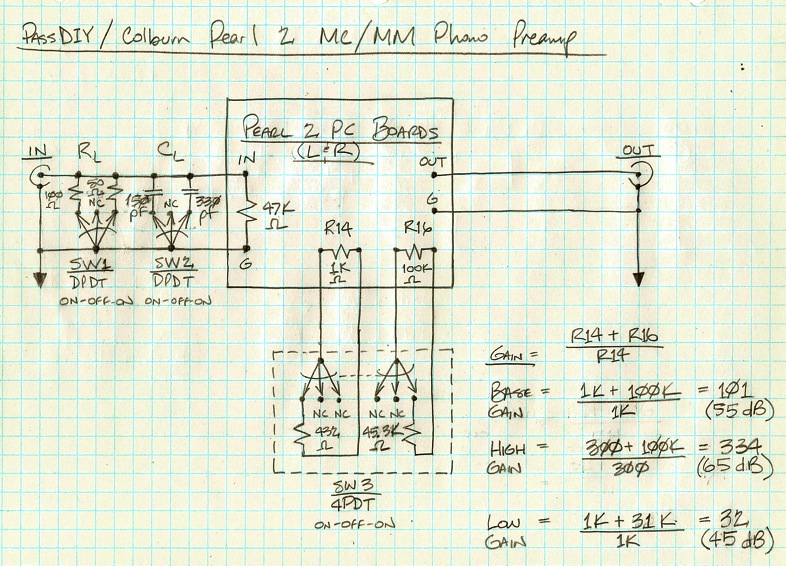 PassDIY/Colburn Pearl 2 MC/MM Phono Preamp
PEARL 2 PC BOARDS
(L & R)
IN
RL
CL
IN
OUT
OUT
100 Ω
50 Ω
NC
150 pF
NC
330 pF
47K Ω
G
G
R14
1K Ω
R16
100K Ω
SW1
DPDT
ON-OFF-ON
SW2
DPDT
ON-OFF-ON
NC NC
NC NC
432 Ω
45.3K Ω
SW3
4PDT
ON-OFF-ON
GAIN = R14 + R16 / R14
BASE GAIN = 1K + 100K / 1K = 101 (55 dB)
HIGH GAIN = 300 + 100K / 300 = 334 (65 dB)
LOW GAIN = 1K + 31K / 1K = 32 (45 dB)